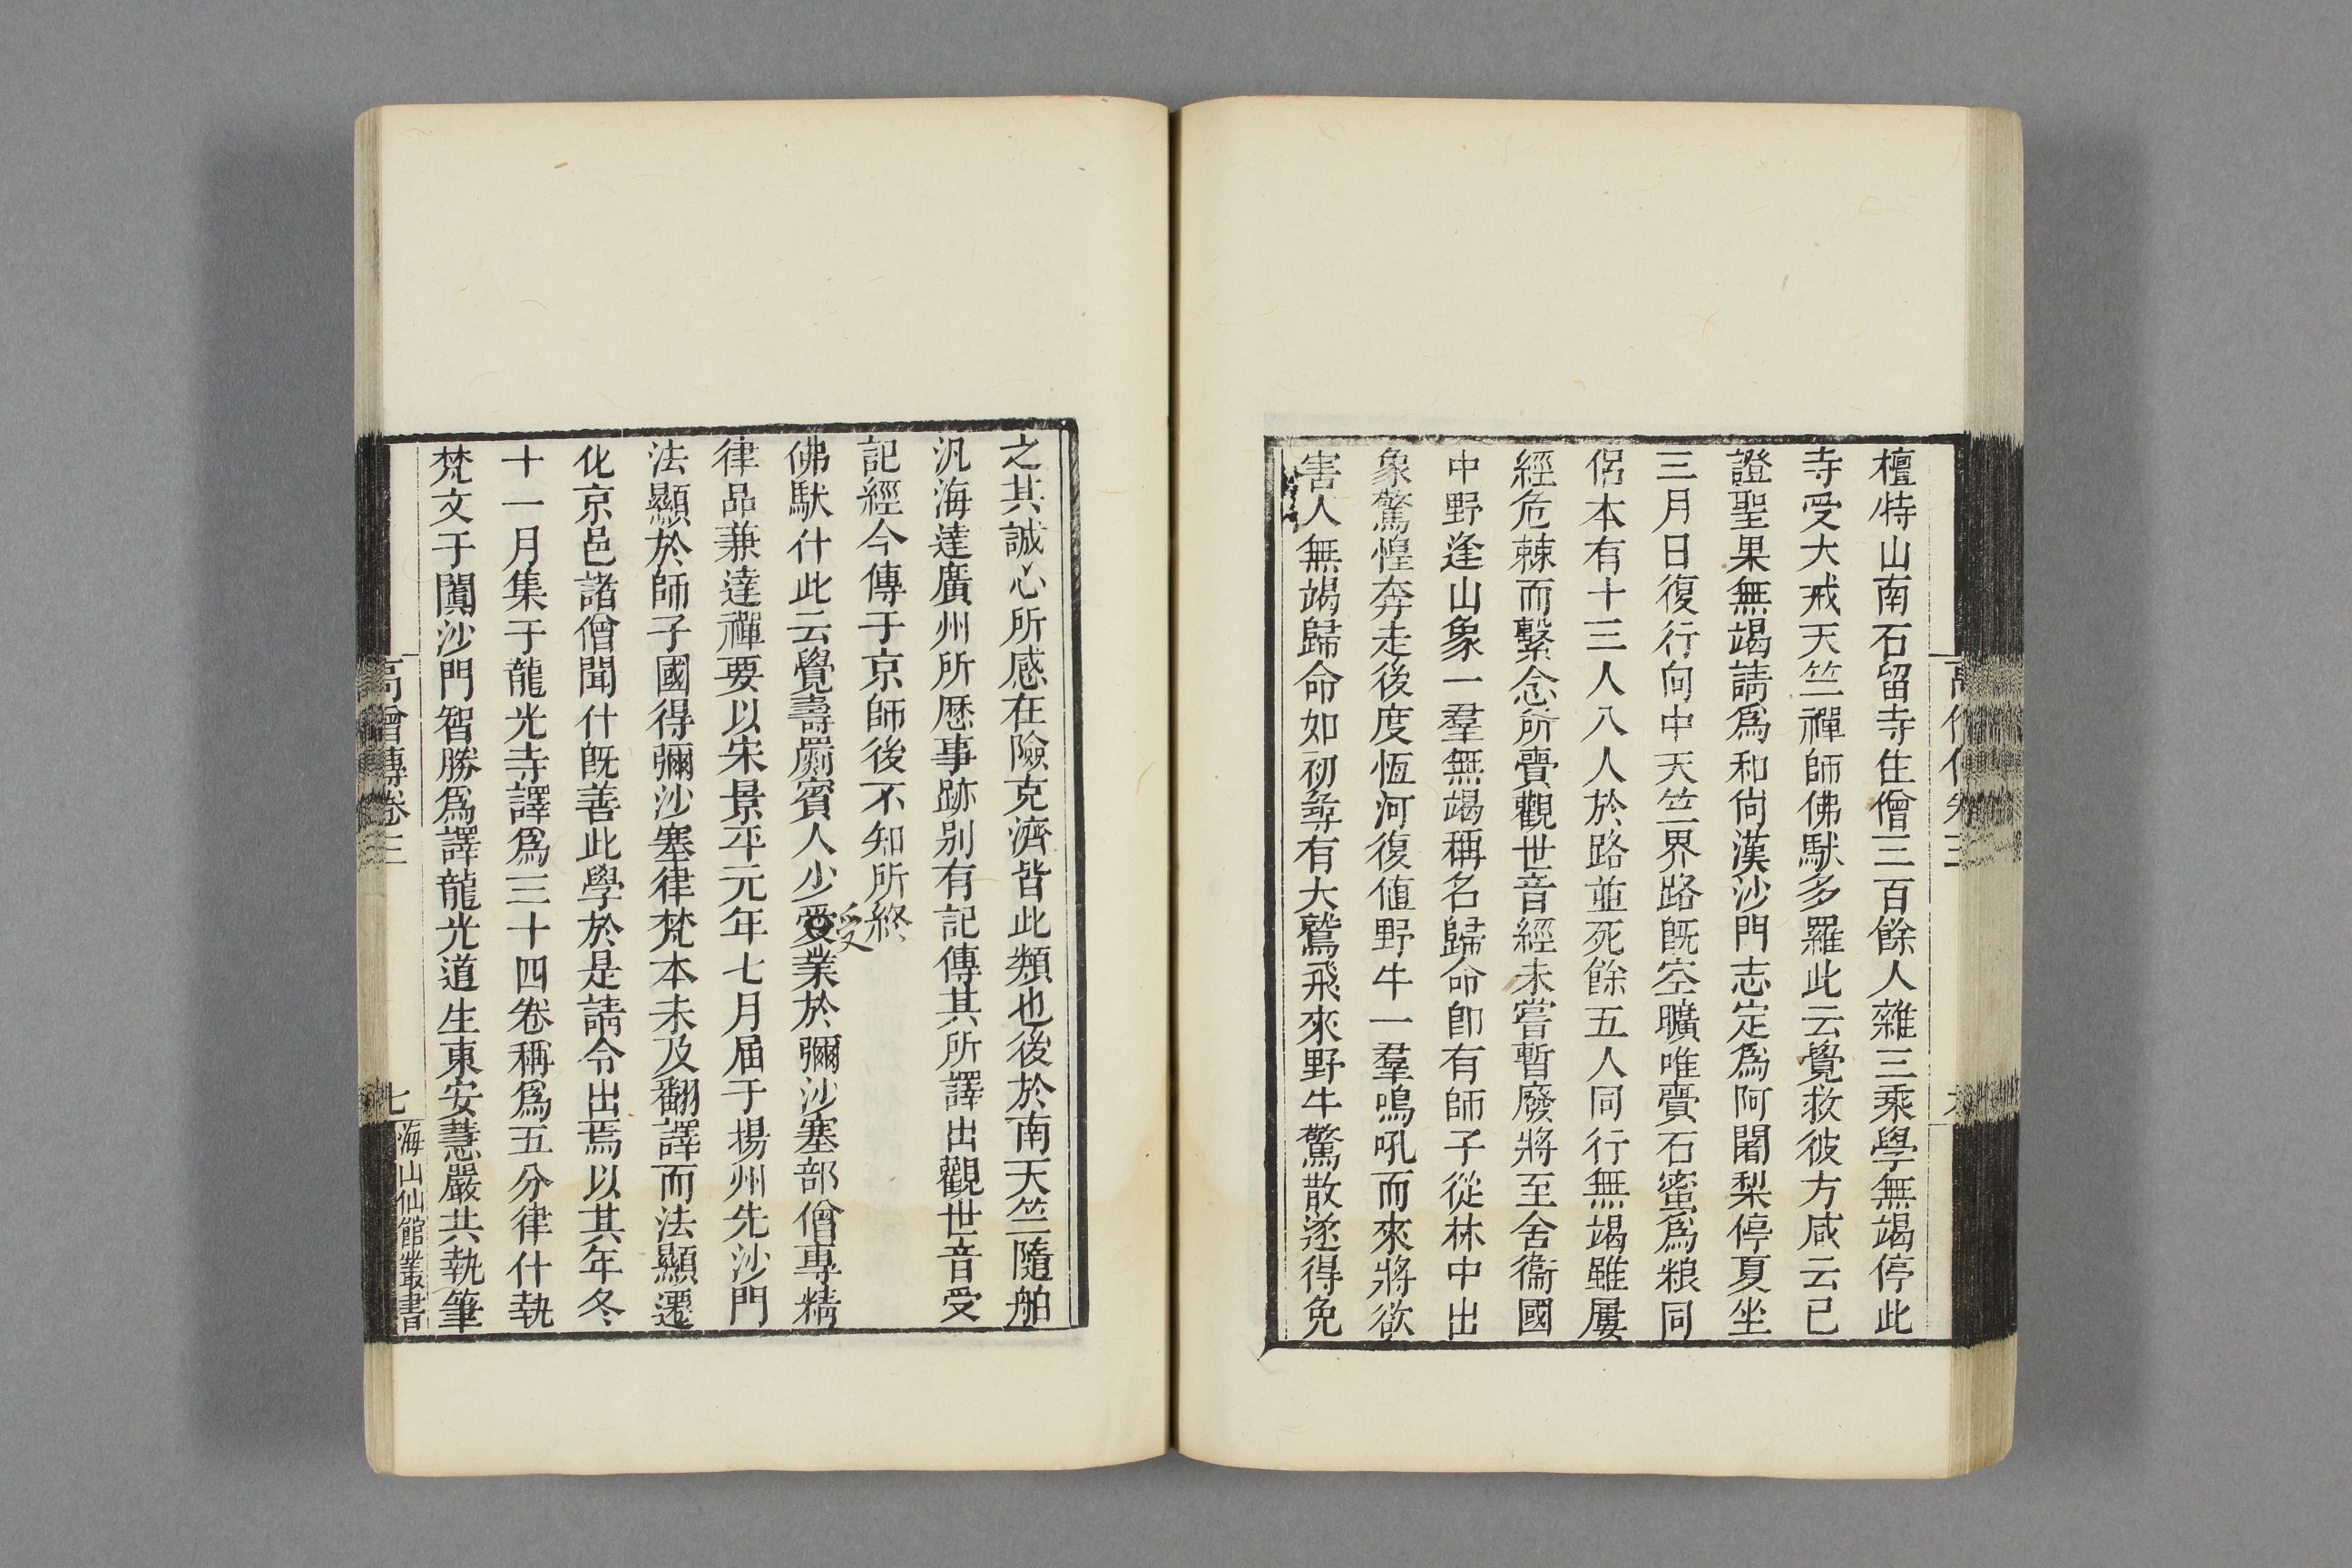 檀特山南石留寺住僧三百餘人雜三乘學無竭停此
寺受大戒天竺禪師佛馱多羅此云覺救彼方咸云已
證聖果無竭請爲和尙漢沙門志定爲阿闍梨停夏坐
三月日復行向中天竺界路旣空曠唯賷石蜜爲粮同
侶本有十三人八人於路並死餘五人同行無竭雖屢
經危棘而繫念所賷觀世音經未嘗暫廢將至舍衞國
中野逢山象一羣無竭稱名歸命卽有師子從林中出
象驚惶奔走後度恆河復値野牛一羣鳴吼而來將欲
害人無竭歸命如初尋有大鷲飛來野牛驚散遂得免
之其誠心所感在險克濟皆此類也後於南天竺隨舶
汎海達廣州所歷事跡別有記傳其所譯出觀世音受
記經今傳于京師後不知所終
佛馱什此云覺壽罽賓人少愛業於彌沙塞部僧專精
受
律品兼達禪要以宋景平元年七月届于揚州先沙門
法顯於師子國得彌沙塞律梵本未及翻譯而法顯遷
化京邑諸僧聞什旣善此學於是請令出焉以其年冬
十一月集于龍光寺譯爲三十四卷稱爲五分律什執
梵文于闐沙門智勝爲譯龍光道生東安慧嚴共執筆
高僧傳卷三
七
海山仙館叢書